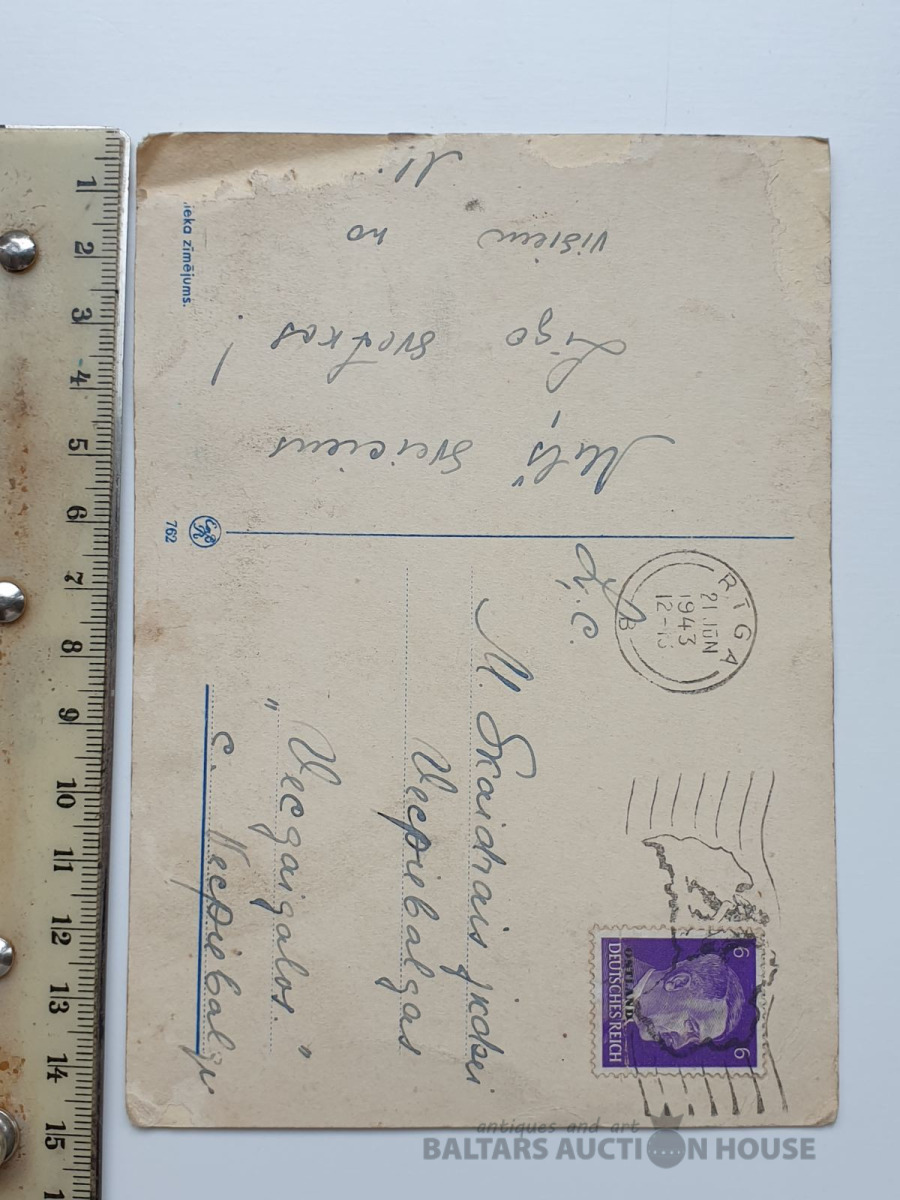 1 2 3 4 5 6 7 8 9 10 11 12 13 14 15
ieka zīmējums.
762
Mīļš sveiciens
Līgo svētkos!
visiem no
M.
RĪGA
21 JŪN
1943
12-13
B
6 6
OSTLAND
DEUTSCHES REICH
Lj. c.
M. Skaidrais jkdzei
Vecpiebalgas
"Vecgaigalos."
c. Vecpiebalgu
antiques and art
BALTARS AUCTION HOUSE